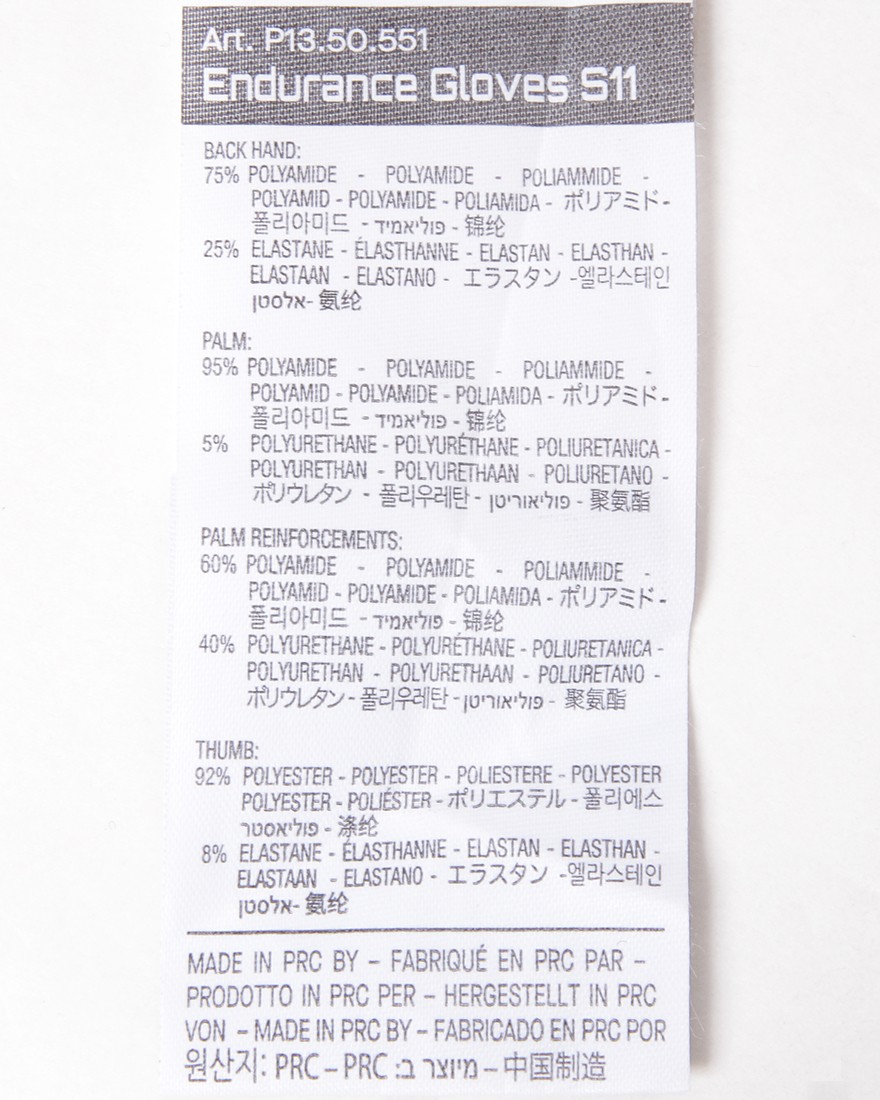 Art. P13.50.551
Endurance Gloves S11
BACK HAND:
75% POLYAMIDE - POLYAMIDE - POLIAMMIDE -
POLYAMID - POLYAMIDE - POLIAMIDA - ポリアミド -
폴리아미드 - פוליאמיד - 锦纶
25% ELASTANE - ÉLASTHANNE - ELASTAN - ELASTHAN -
ELASTAAN - ELASTANO - エラスタン -엘라스테인
אלסטן- 氨纶
PALM:
95% POLYAMIDE - POLYAMIDE - POLIAMMIDE -
POLYAMID - POLYAMIDE - POLIAMIDA - ポリアミド -
폴리아미드 - פוליאמיד - 锦纶
5% POLYURETHANE - POLYURÉTHANE - POLIURETANICA -
POLYURETHAN - POLYURETHAAN - POLIURETANO -
ポリウレタン - 폴리우레탄 - פוליאוריטן - 聚氨酯
PALM REINFORCEMENTS:
60% POLYAMIDE - POLYAMIDE - POLIAMMIDE -
POLYAMID - POLYAMIDE - POLIAMIDA - ポリアミド -
폴리아미드 - פוליאמיד - 锦纶
40% POLYURETHANE - POLYURÉTHANE - POLIURETANICA -
POLYURETHAN - POLYURETHAAN - POLIURETANO -
ポリウレタン - 폴리우레탄 - פוליאוריטן - 聚氨酯
THUMB:
92% POLYESTER - POLYESTER - POLIESTERE - POLYESTER
POLYESTER - POLIÉSTER - ポリエステル - 폴리에스
פוליאסטר - 涤纶
8% ELASTANE - ÉLASTHANNE - ELASTAN - ELASTHAN -
ELASTAAN - ELASTANO - エラスタン -엘라스테인
אלסטן- 氨纶
MADE IN PRC BY – FABRIQUÉ EN PRC PAR –
PRODOTTO IN PRC PER – HERGESTELLT IN PRC
VON – MADE IN PRC BY – FABRICADO EN PRC POR
원산지: PRC – PRC מיוצר ב: – 中国制造